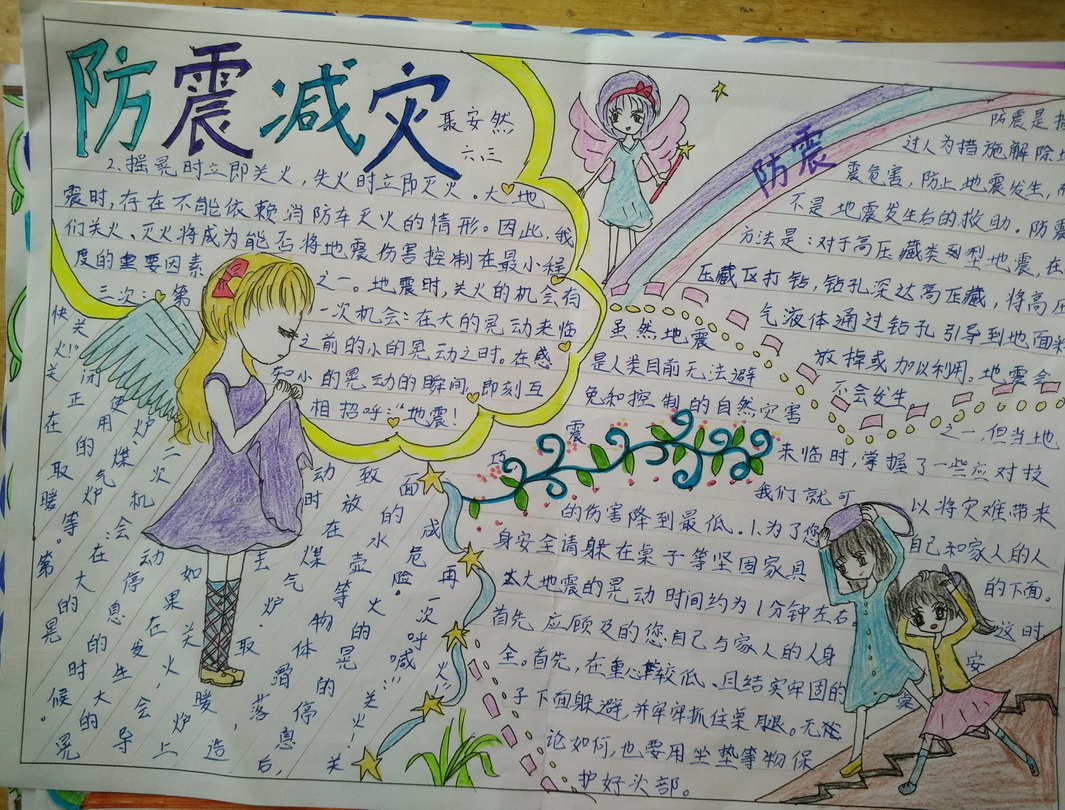 防震减灾
聂安然
六、三
2.摇晃时立即关火,失火时立即灭火。大地
震时,存在不能依赖消防车灭火的情形。因此,我
们关火、灭火将成为能否将地震伤害控制在最小程
度的重要因素 之一。地震时,关火的机会有
三次:第 一次机会:在大的晃动来临
之前的小的晃动之时。在感
知小的晃动的瞬间,即刻互
相招呼:“地震!
快关
火!”
关
闭正在
使用的取暖
炉煤气炉等。第
二次机会在大的晃
动停息的时候。
在发生大的晃
动时
如果
去关火,会导
致放在煤气炉取暖炉上
面的水壶等物体滑落,造
成危险。火的晃的停息后,
再一次呼喊:“关火!关
火!
防震
防震是指
过人为措施解除地
震危害,防止地震发生,而
不是地震发生右的救助。防震
方法是:对于高压藏类型地震,在
压藏区打钻,钻孔深达高压藏,将高压
气液体通过钻孔引导到地面来
放掉或加以利用。地震会
不会发生。
虽然地震
是人类目前无法避
免和控制的自然灾害 之一,但当地
震 来临时,掌握了一些应对技
巧 我们就可 以将灾难带来
的伤害降到最低。1.为了您 自己和家人的人
身安全请躲在桌子等坚固家具 的下面。
大地震的晃动时间约为1分钟左右。 这时
首先应顾及的您自己与家人的人身 安
全。首先,在重心较低、且结实牢固的 桌
子下面躲避,并牢牢抓住桌腿。无论
论如何,也要用坐垫等物保
护好头部。